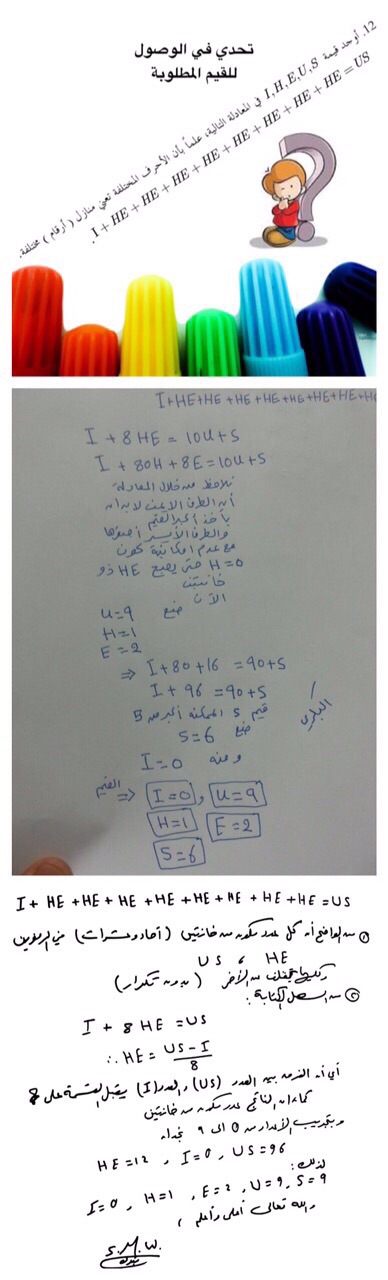 تحدي في الوصول
للقيم المطلوبة
12. أوجد قيمة I,H,E,U,S في المعادلة التالية، علماً بأن الأحرف المختلفة تعني منازل ( أرقام ) مختلفة.
I + HE + HE + HE + HE + HE + HE + HE + HE = US.
I+HE+HE+HE+HE+HE+HE+HE+
I + 8HE = 10U+S
I + 80H + 8E = 10U+S
نلاحظ من خلال المعادلة
أن الطرف الأيمن لابد أن
يأخذ أكبر القيم
والطرف الأيسر أصغرها
مع عدم امكانية كون
H=0 حتى يصبح HE ذو
خانتين
الآن نضع U=9
H=1
E=2
⇒ I+80+16 = 90+S
I + 96 = 90+S
قيم S الممكنة أكبر من 5
نضع S=6
ومنه I=0
القيم ⇐ I=0 , U=9
H=1 E=2
S=6
I + HE + HE + HE + HE + HE + HE + HE + HE = US
① من الواضح أن كل عدد مكون من خانتين (آحاد وعشرات) من الرمزين
US و HE
(بدون تكرار)
② من السهل كتابة:
I + 8HE = US
∴ HE = US − I / 8
أي أن الفرق بين العدد (US) والعدد (I) يقبل القسمة على 8
كما أن الناتج عدد مكون من خانتين
وبتجريب الأعداد من 0 إلى 9 نجد أن
HE=12 , I=0 , US=96
لذلك:
I=0 , H=1 , E=2 , U=9 , S=9
والله تعالى أعلى وأعلم ،
S.M.W.